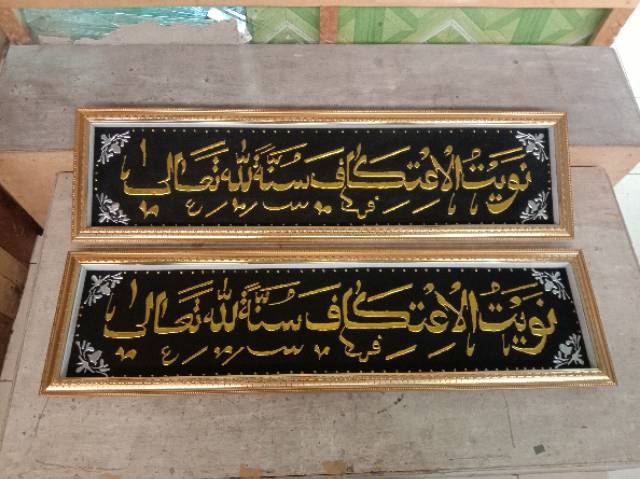 نَوَيْتُ الْاِعْتِكَافَ سُنَّةً لِلّٰهِ تَعَالٰى
نَوَيْتُ الْاِعْتِكَافَ سُنَّةً لِلّٰهِ تَعَالٰى